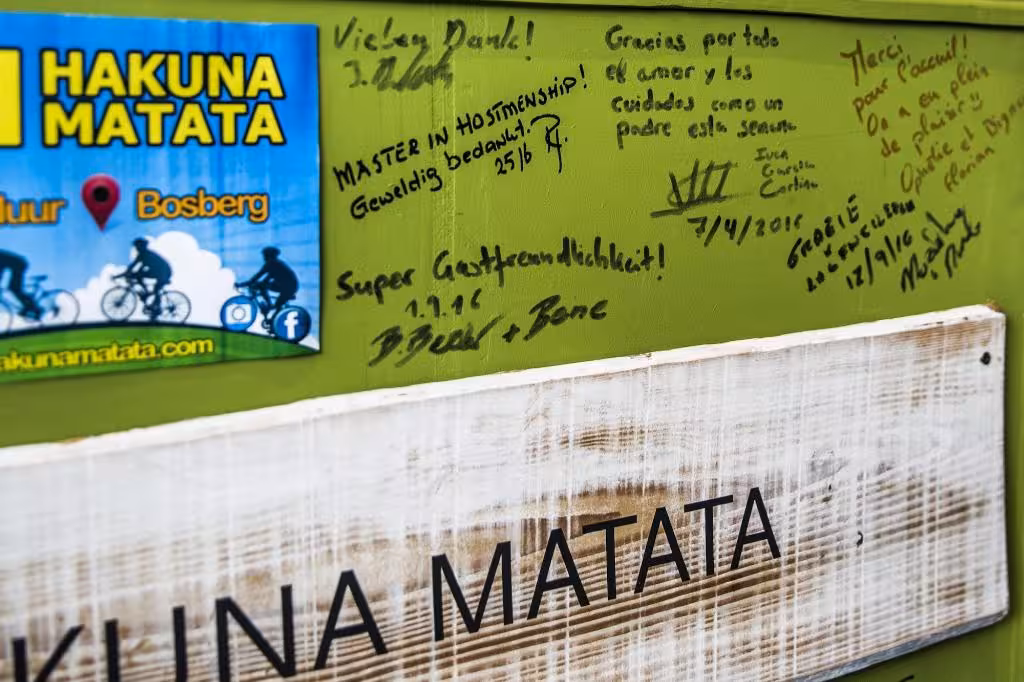 HAKUNA
MATATA
uur Bosberg
akunamatata.com
Vielen Dank!
MASTER IN HOSTMENSHIP!
Geweldig bedankt.
25/6
Super Gastfreundlichkeit!
1.9.16
B. Beer + Bene
Gracias por todo
el amor y los
cuidados como un
padre esta semana
7/4/2016
Merci
pour l'accueil!
On a eu plein
de plaisir
Ophélie et
Florian
12/9/16
KUNA MATATA